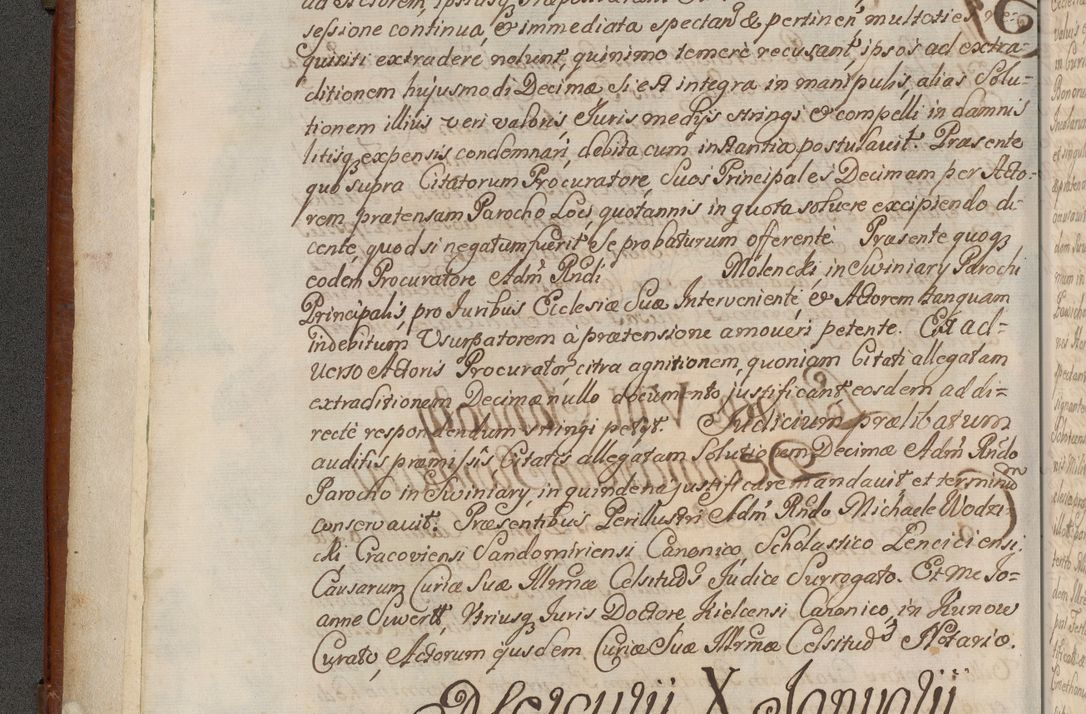 sessione continuâ, & immediata spectan & pertinen multoties re-
quisiti extradere nolunt, quinimo temerè recusant, ipsos ad extra=
ditionem hujusmodi Decimæ si est integra in manipulis, alias Solu-
tionem illius veri valoris Juris medijs stringi & compelli in damnis
litisq expensis condemnari, debita cum instantia postulavit. Præsente
quo supra Citatorum Procuratore, Suos Principales Decimam per Acto-
rem prætensam Parocho Loci quotannis in quota solvere excipiendo di-
cente, quod si negatum fuerit, se probaturum offerente. Præsente quoq
eodem Procuratore Adm Rndi Molencki in Swiniary Parochi
Principalis pro Juribus Ecclesiæ Suæ Interveniente, & Actorem tanquam
indebitum Usurpatorem à prætensione amoveri petente. Ex ad=
verso Actoris Procurator citra agnitionem, quoniam Citati allegatam
extraditionem Decimæ nullo documento justificant eosdem ad di=
rectè respondendum stringi petijt. Judicium prælibatum
auditis præmissis Citatis allegatam Solutionem Decimæ Adm Rndo
Parocho in Swiniary, in quindena justificare mandavit et terminum
conservavit. Præsentibus Perillustri Adm Rndo Michaele Wodzi-
cki Cracoviensi Sandomiriensi Canonico, Scholastico Lenciciensi,
Causarum Curiæ Suæ Illrmæ Celsitud Judice Surrogato. Et Me Jo=
anne Suwertt, Utriusq Juris Doctore, Kielcensi Canonico, in Kunow
Curato, Actorum ejusdem Curiæ Suæ Illrmæ Celsitud Notario.
Mercurij X Januarij